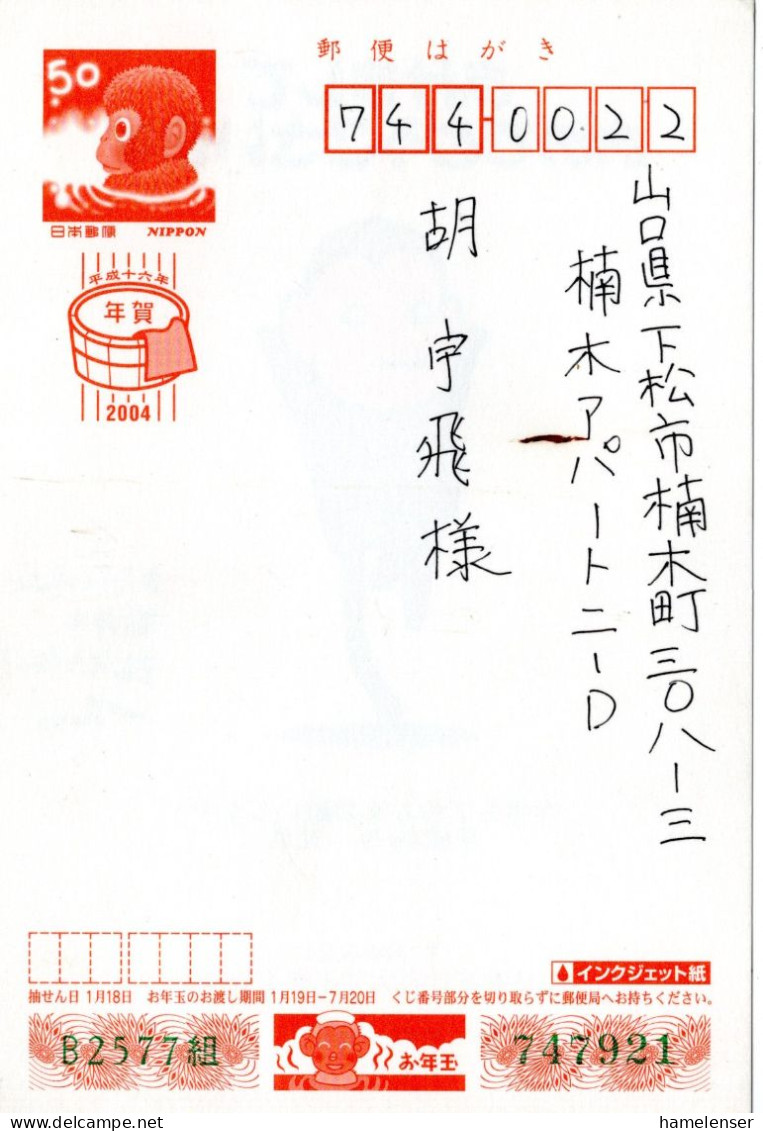 郵便はがき
50
日本郵便 NIPPON
744-0022
平成十六年
年賀
2004
山口県下松市楠木町三〇八-三
楠木アパートニ-D
胡 宇飛様
インクジェット紙
抽せん日 1月18日 お年玉のお渡し期間 1月19日-7月20日 くじ番号部分を切り取らずに郵便局へお持ちください。
B2577組
お年玉
747921
hamelenser